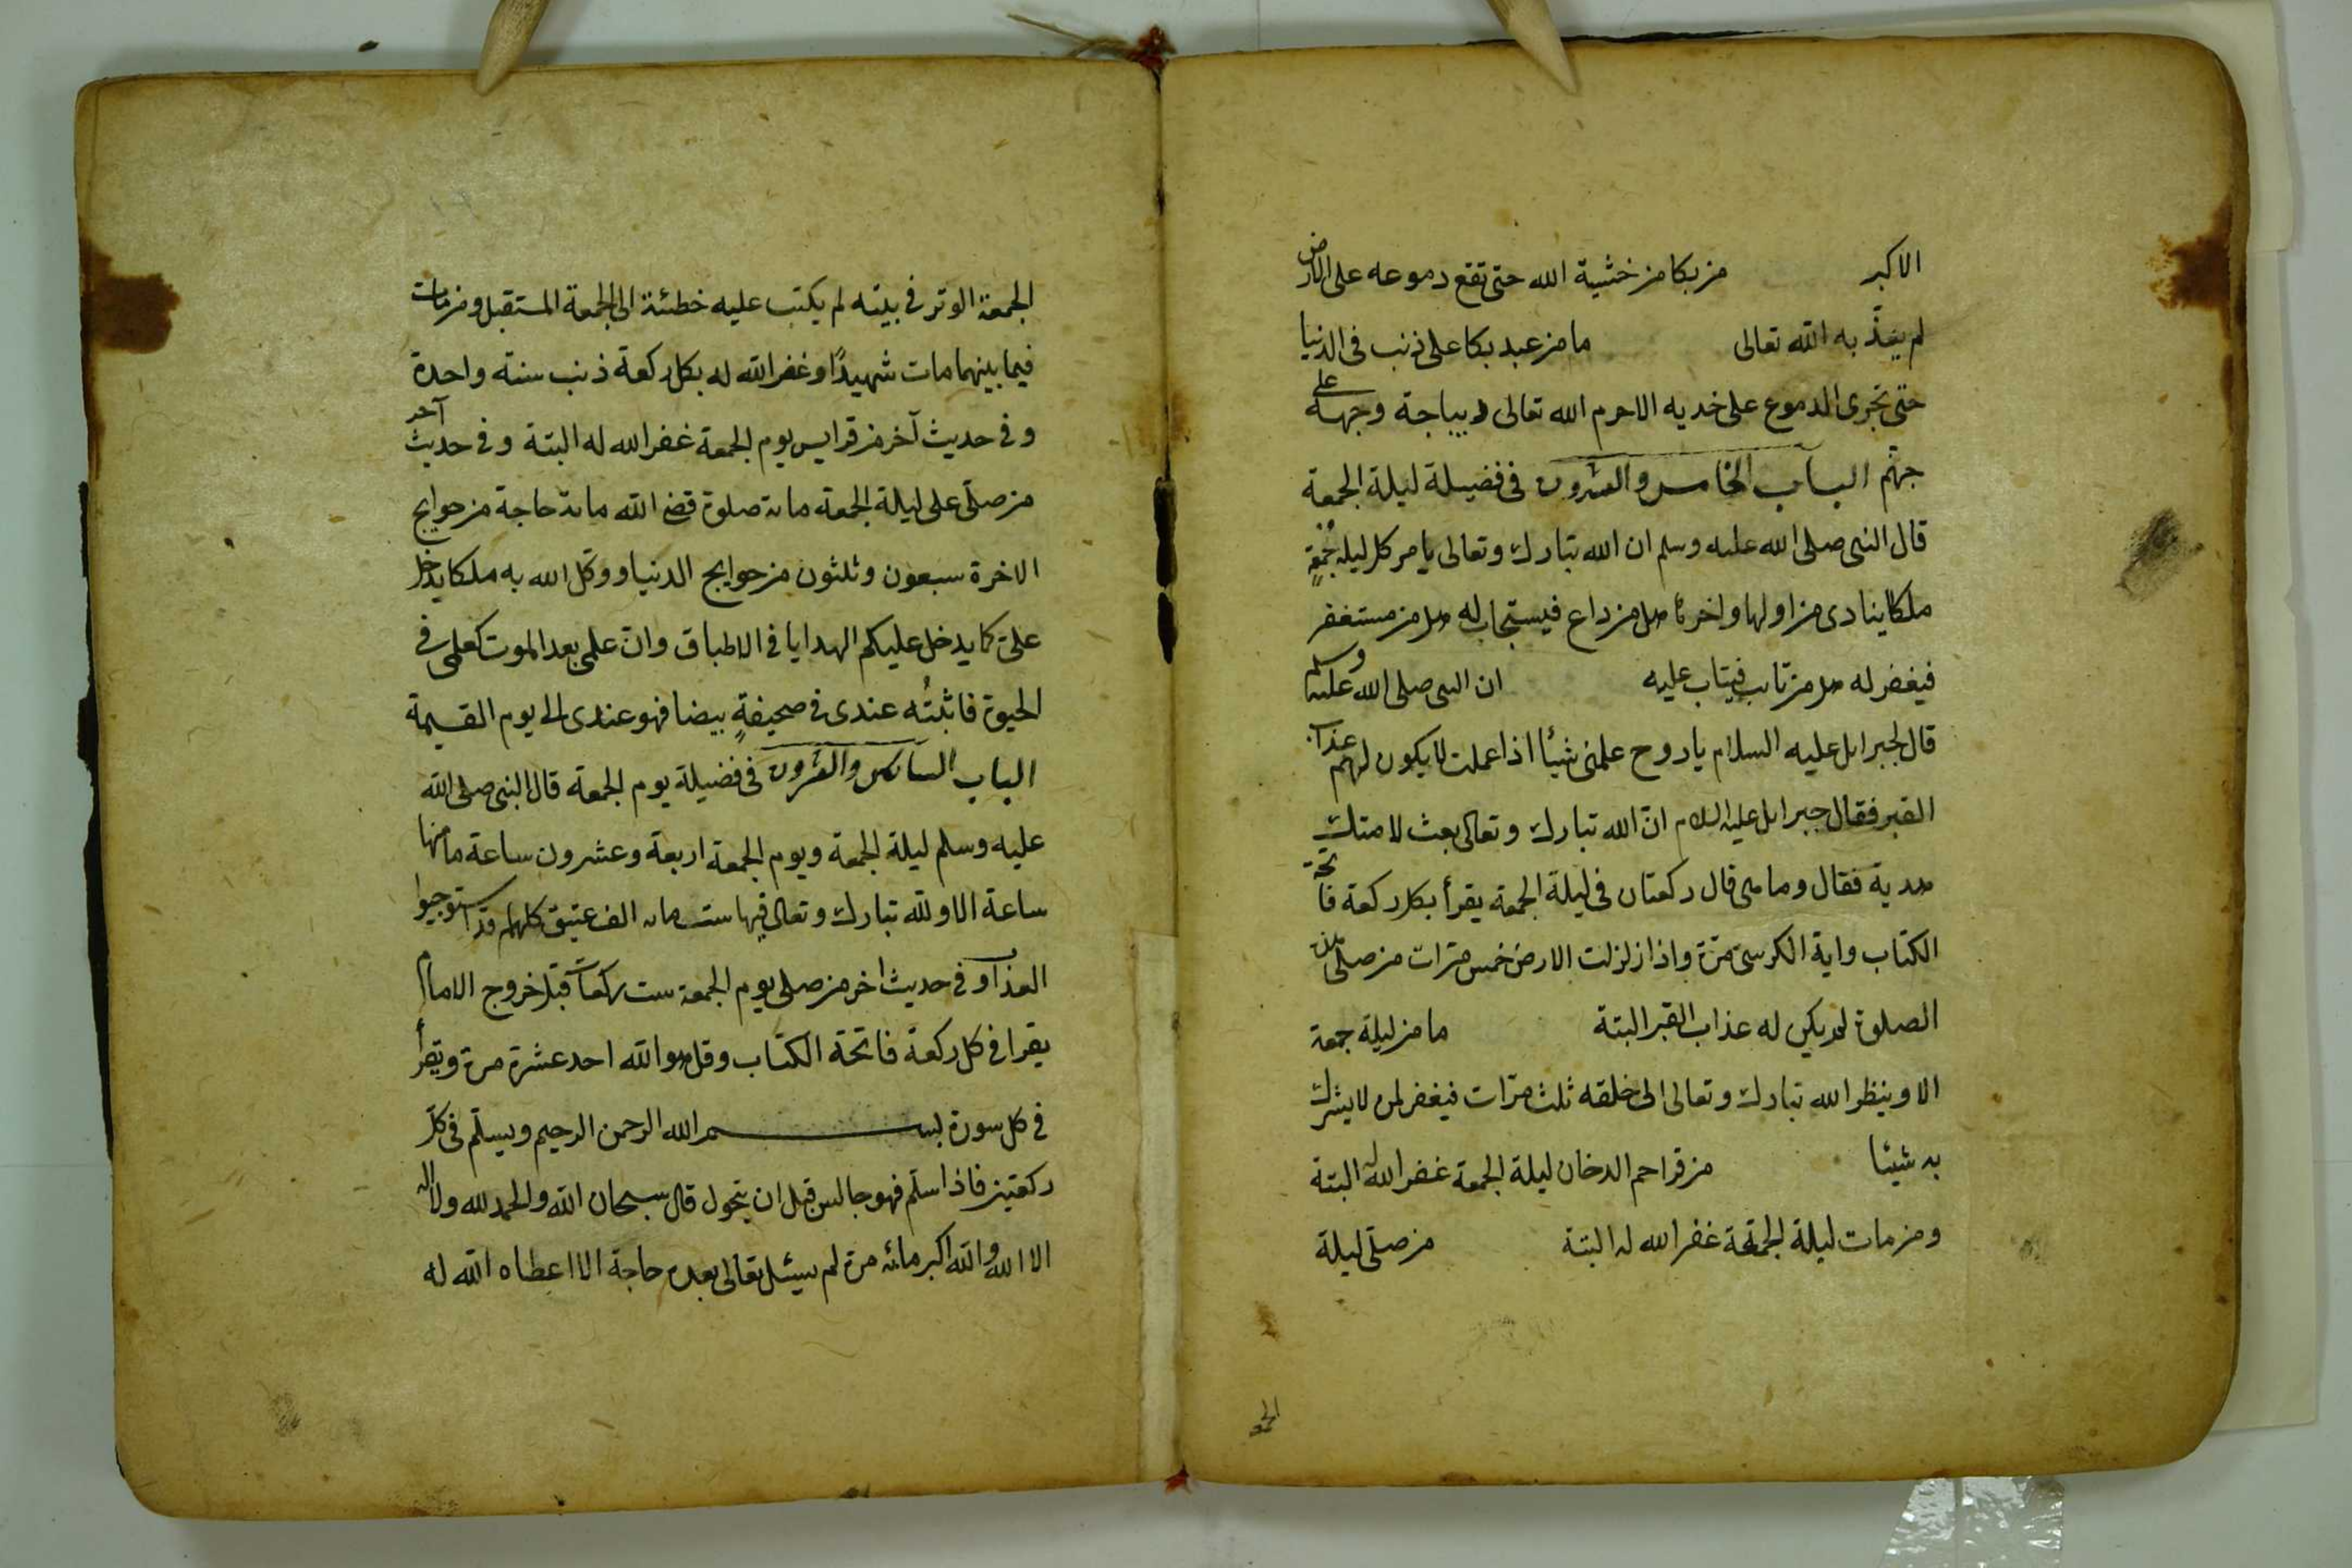 الاكبر من بكا من خشية الله حتى تقع دموعه على الارض
لم يعذّبه الله تعالى ما من عبد بكا على ذنب فى الدنيا
حتى تجرى الدموع على خديه الا حرم الله تعالى ديباجة وجهه على
جهنّم الباب الخامس والعشرون فى فضيلة ليلة الجمعة
قال النبى صلى الله عليه وسلم ان الله تبارك وتعالى يامر كل ليلة جُمُعةٍ
ملكا ينادى من اولها واخرها هل من داع فيستجاب له هل من مستغفر
فيغفر له هل من تايب فيتاب عليه ان النبى صلى الله عليه وسلم
قال لجبرايل عليه السلام يا روح علمنى شيئا اذا عملت لا يكون لهم عذاب
القبر فقال جبرايل عليه السلام انّ الله تبارك وتعالى بعث لامتك
هدية فقال وما هى قال ركعتان فى ليلة الجمعة يقرأ بكل ركعة فاتحة
الكتاب واية الكرسىّ مرّة واذا زلزلت الارض خمس مرّات من صلى هذه
الصلوة لم يكن له عذاب القبر البتة ما من ليلة جمعة
الا وينظر الله تبارك وتعالى الى خلقه ثلث مرّات فيغفر لمن لا يشرك
به شيئا من قرا حم الدخان ليلة الجمعة غفر الله له البتة
ومن مات ليلة الجمعة غفر الله له البتة من صلّى ليلة
الجمعة
الجمعة الوتر فى بيته لم يكتب عليه خطئة الى الجمعة المستقبل ومن مات
فيما بينهما مات شهيدًا وغفر الله له بكل ركعة ذنب سنة واحدة
وفى حديث آخر من قرا يس يوم الجمعة غفر الله له البتة وفى حديث آخر
من صلّى على ليلة الجمعة مائة صلوة قضى الله مائة حاجة من حوايج
الاخرة سبعون وثلثون من حوايج الدنيا ووكّل الله به ملكا يدخل
علىّ كما يدخل عليكم الهدايا فى الاطباق وانّ علمى بعد الموت كعلمى فى
الحيوة فاثبتُه عندى فى صحيفةٍ بيضا فهو عندى الى يوم القيمة
الباب السادس والعشرون فى فضيلة يوم الجمعة قال النبى صلى الله
عليه وسلم ليلة الجمعة ويوم الجمعة اربعة وعشرون ساعة ما منها
ساعة الا ولله تبارك وتعالى فيها ست مائه الف عتيق كلهم قد استوجبوا
العذاب وفى حديث اخر من صلى يوم الجمعة ست ركعات قبل خروج الامام
يقرا فى كل ركعة فاتحة الكتاب وقل هو الله احد عشرة مرة ويقرأ
فى كل سورة بسم الله الرحمن الرحيم ويسلّم فى كلّ
ركعتين فاذا سلّم فهو جالس قبل ان يتحول قال سبحان الله والحمد لله ولا اله
الا الله والله اكبر مائه مرة لم يسئل تعالى بعده حاجة الا اعطاه الله له